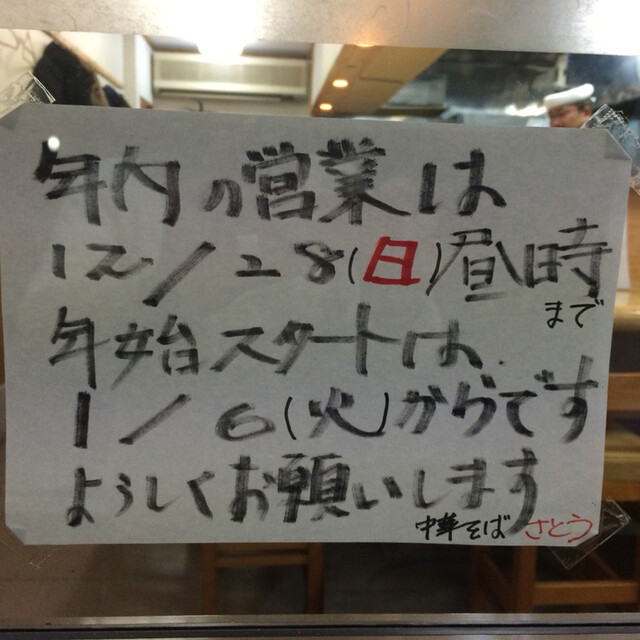 年内の営業は
12/28(日)昼時
まで
年始スタートは、
1/6(火)からです
よろしくお願いします
中華そば さとう